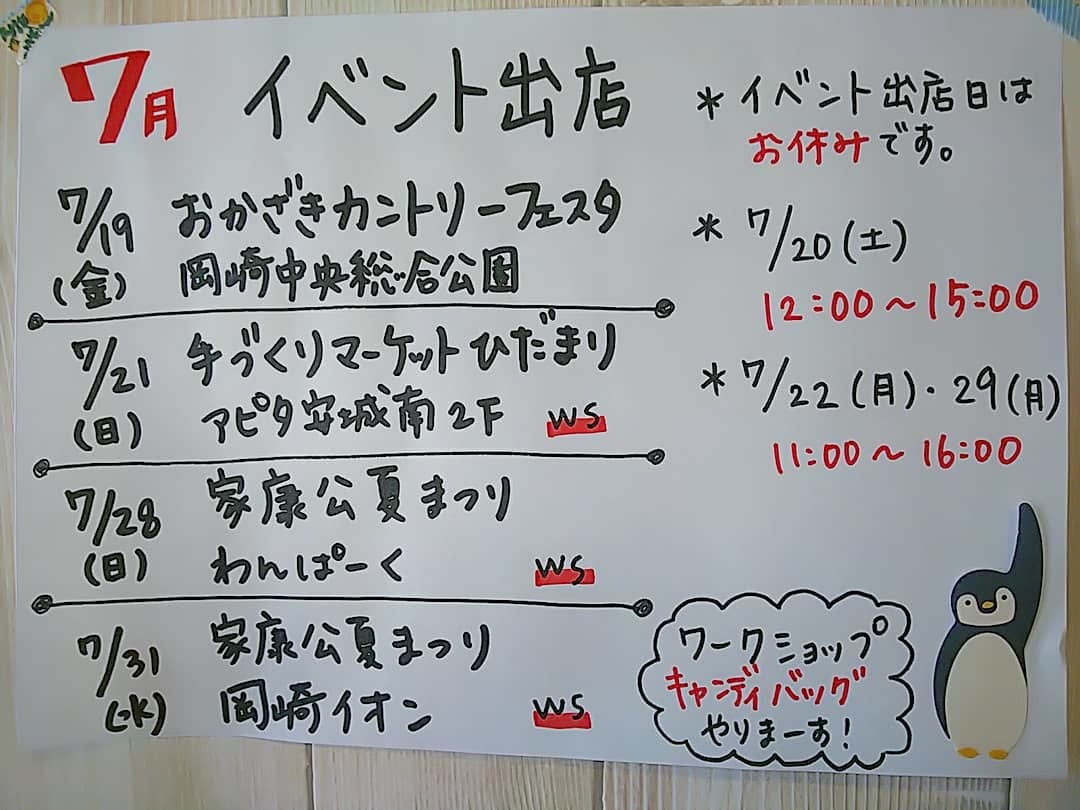 7月 イベント出店
7/19 おかざきカントリーフェスタ
(金) 岡崎中央総合公園
7/21 手づくりマーケットひだまり
(日) アピタ安城南2F WS
7/28 家康公夏まつり
(日) わんぱーく WS
7/31 家康公夏まつり
(水) 岡崎イオン WS
*イベント出店日は
お休みです。
* 7/20(土)
12:00~15:00
* 7/22(月)・29(月)
11:00~16:00
ワークショップ
キャンディバッグ
やりまーす!